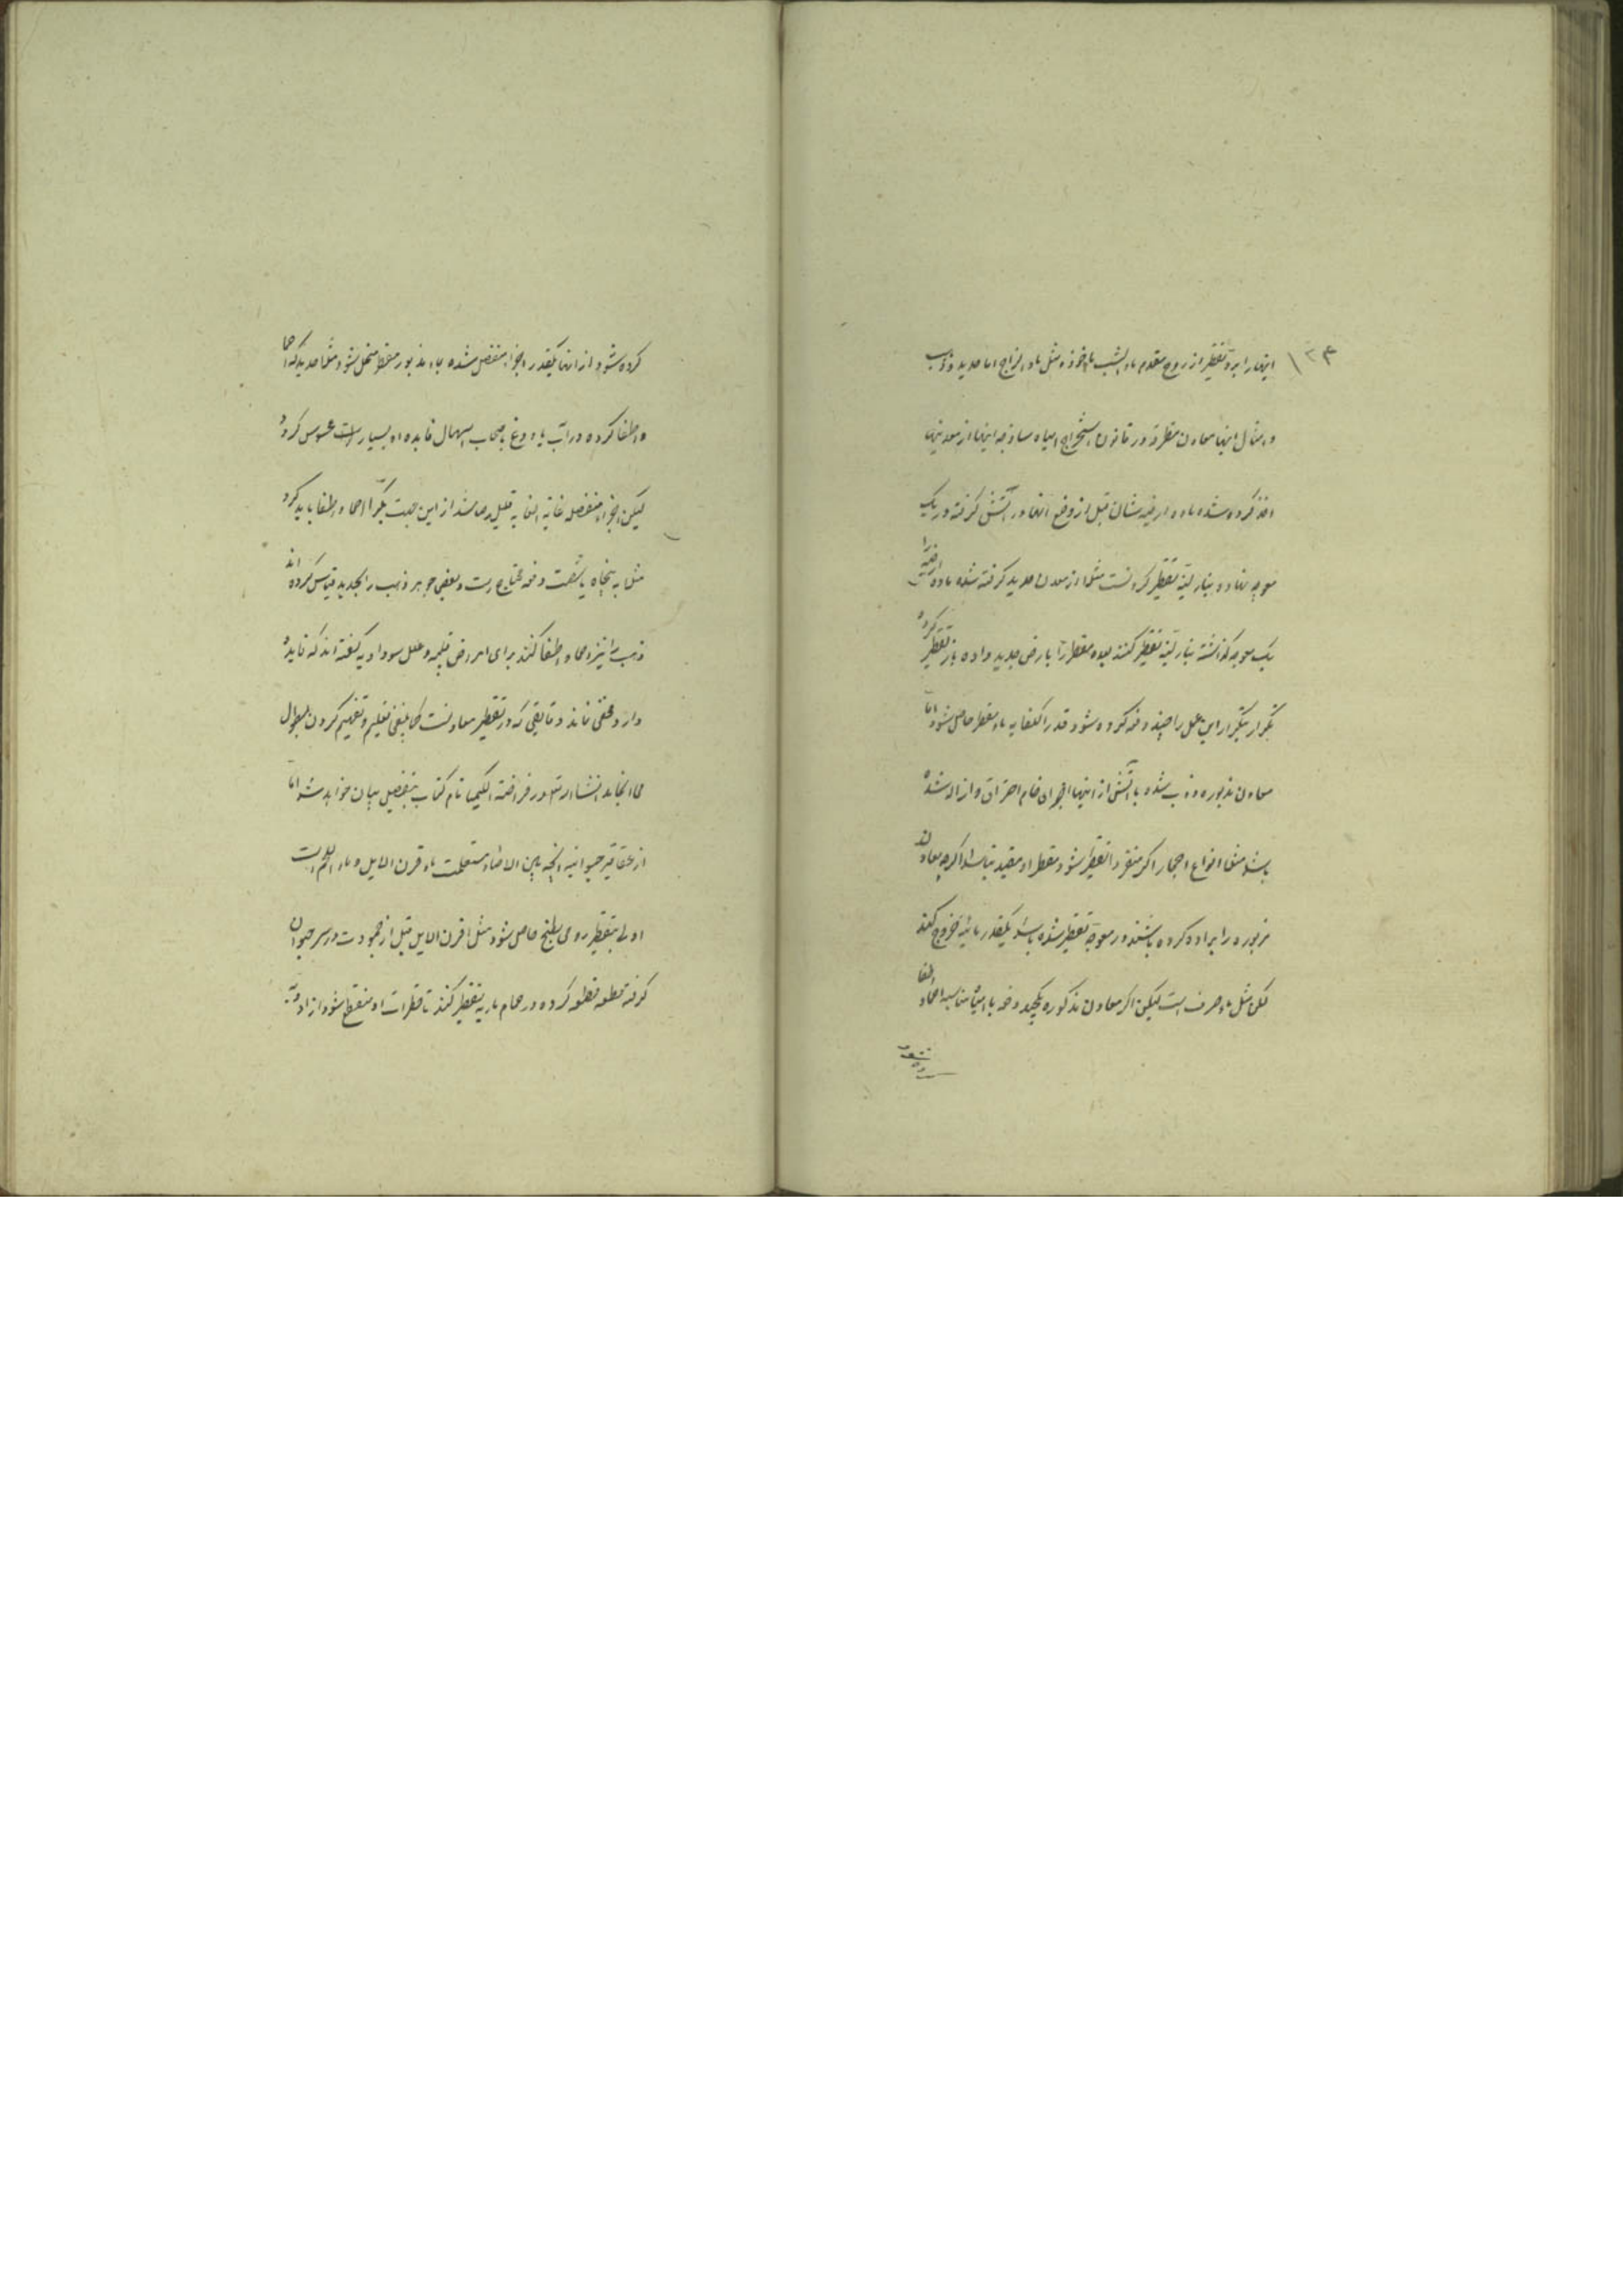 ۱۲۴
اینها را ابرد تقطیر از روح مقدم ماء الشب ماخوذ مثل ماء الزاج اما حدید و ذهب
و امثال اینها معادن منطرقه در قانون استخراج میاه ساذجه اینها از معدنها
اخذ کرده شده ماده ارضیه‌شان قبل از وضع آنها در آتش گرفته در یک
معوجه نهاده بنار لینه تقطیر کردنست مثلا از معدن حدید گرفته شده ماده ارضیه را
یک معوجه گذاشته بنار لینه تقطیر کنند بعده مقطر را بارض جدید داده باز تقطیر کرده
تکرار بتکرار این عمل را چند دفعه کرده شود قدر اکتفایه ماء مقطر حاصل شود اما
معادن مذبوره ذوب شده با آتش از اینها اجزای خام احتراق و ازاله شده
باشد مثلا انواع احجار اگر منفردا تقطیر شود مقطر او مفید نباشد اگرچه معادن
مزبوره را براده کرده باشند در معوجه تقطیر شده باشد یکقدر مائیه خروج کند
لکن مثل ماء صرف است لیکن اگر معادن مذکوره بچند دفعه با میاه مناسبه احماء و اطفا
کرده شود از آنها یکقدر اجزاء منفصل شده بماء مذبور مختلط منحل شود مثلا حدید که احما
و اطفا کرده در آب یا دوغ باصحاب اسهال فایده او بسیار است محسوس کرده
لیکن اجزاء منفصله غایة الغایه قلیل باشد از این جهت مکررا احماء و اطفا باید کرد
مثلا به پنجاه یا شصت دفعه محتاج است و بعضی جوهر ذهب را بحدید قیاس کرده اند
ذهب را نیز احما و اطفا کنند برای امراض قلبیه و علل سوداویه گفته اند که فایده
دارد مخفی نماند دقایقی که در تقطیر معادنست کما ینبغی تعلیم و تفهیم کردن بطوال
می انجامد انشاء الله در قراضة الکیمیا نام کتاب بتفصیل بیان خواهد شد اما
از عقاقیر حیوانیه آنچه بین الاطباء مستعملست ماء قرن الایل و ماء اللحم است
اولی بتقطیر دومی بطبخ حاصل شود مثلا قرن الایل قبل از جمودت در سر حیوان
گرفته قطعه قطعه کرده در حمام ماریه تقطیر کنند تا قطرات او منقطع شود از ادویه